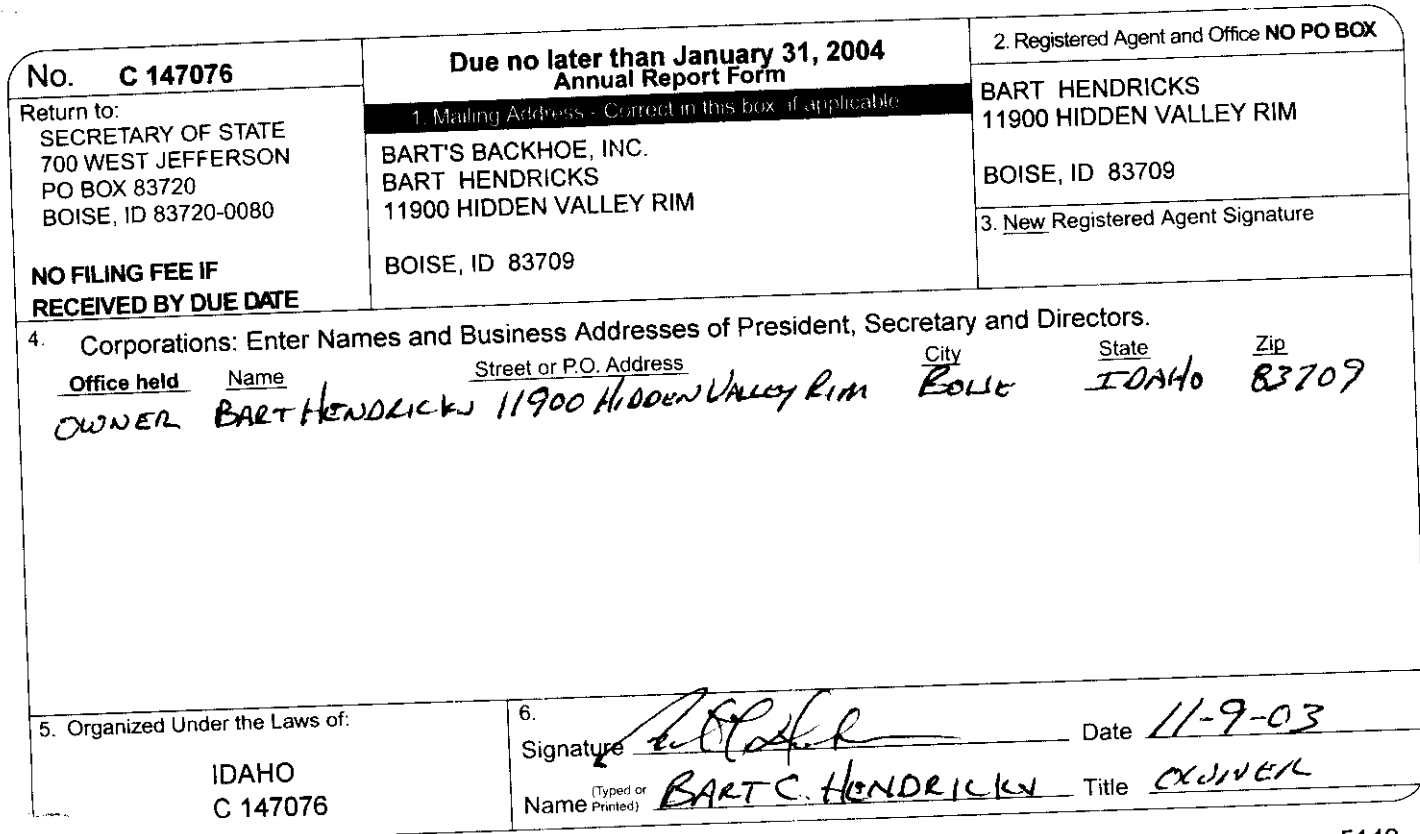 No. C 147076
Return to:
SECRETARY OF STATE
700 WEST JEFFERSON
PO BOX 83720
BOISE, ID 83720-0080
NO FILING FEE IF
RECEIVED BY DUE DATE
Due no later than January 31, 2004
Annual Report Form
1. Mailing Address - Correct in this box if applicable
BART'S BACKHOE, INC.
BART HENDRICKS
11900 HIDDEN VALLEY RIM
BOISE, ID 83709
2. Registered Agent and Office NO PO BOX
BART HENDRICKS
11900 HIDDEN VALLEY RIM
BOISE, ID 83709
3. New Registered Agent Signature
4. Corporations: Enter Names and Business Addresses of President, Secretary and Directors.
Office held Name Street or P.O. Address City State Zip
OWNER BART HENDRICKS 11900 HIDDEN VALLEY RIM BOISE IDAHO 83709
5. Organized Under the Laws of:
IDAHO
C 147076
6.
Signature Date 11-9-03
Name (Typed or Printed) BART C. HENDRICKS Title OWNER